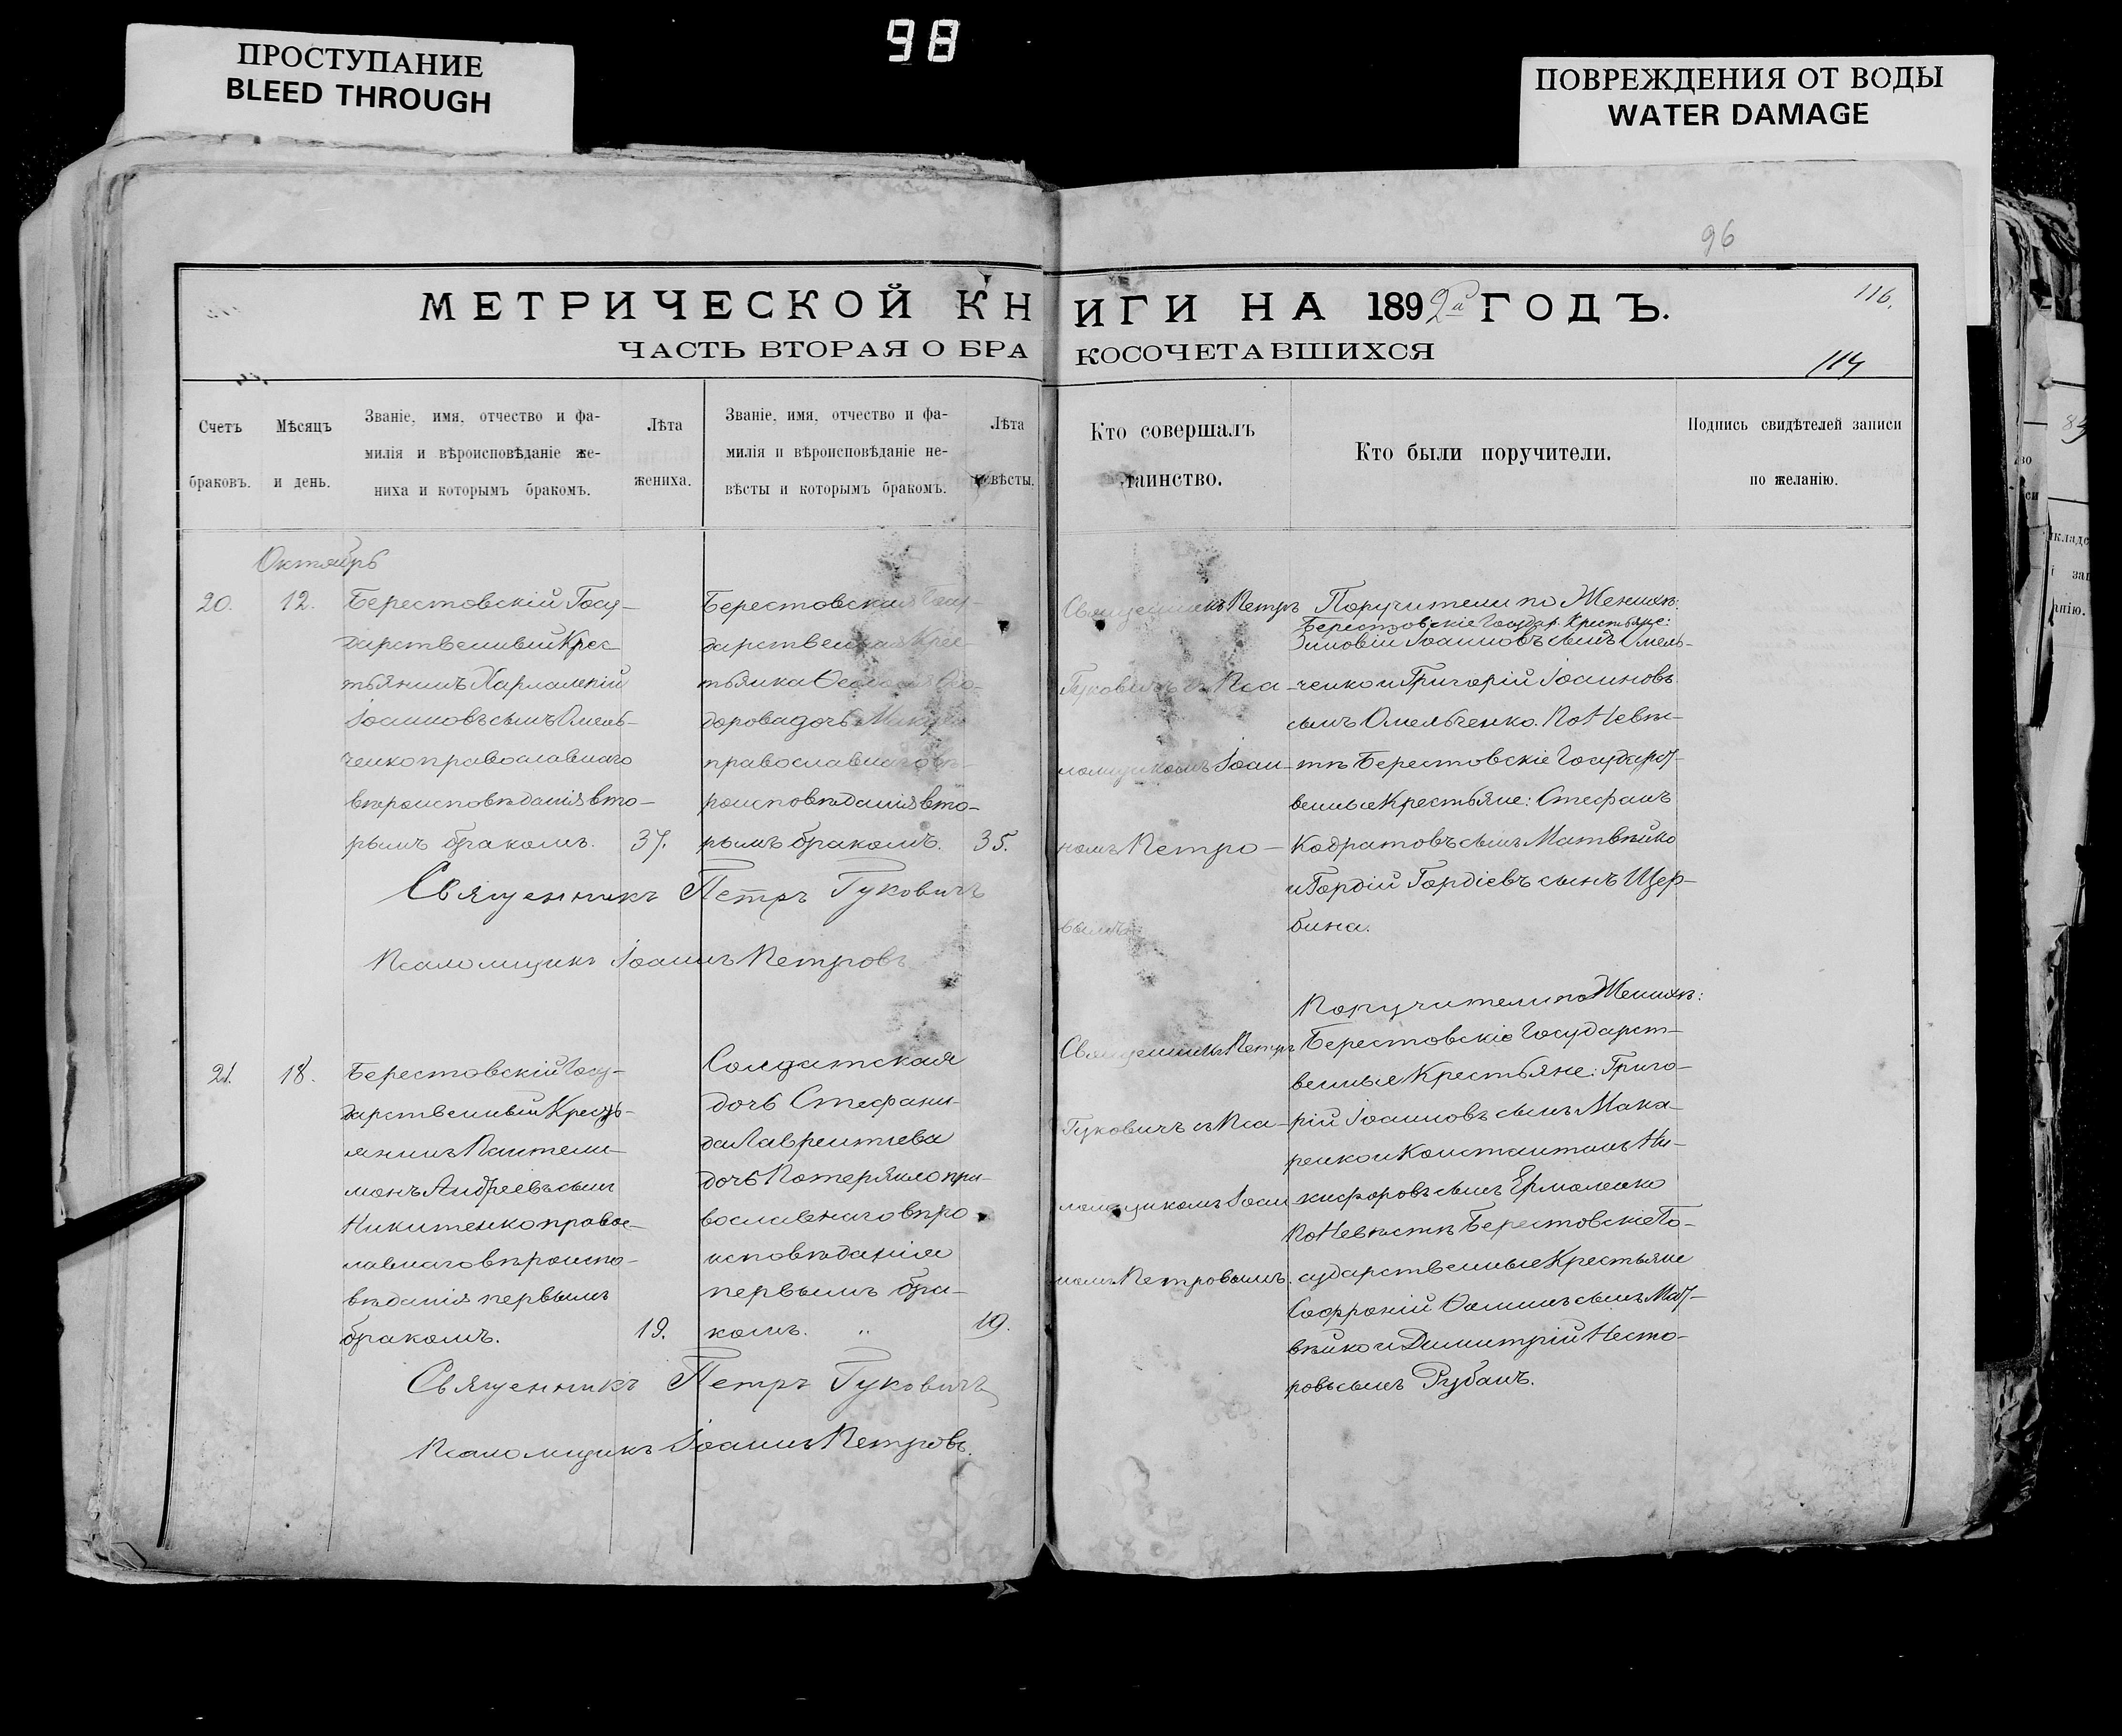 98
ПРОСТУПАНИЕ
BLEED THROUGH
ПОВРЕЖДЕНИЯ ОТ ВОДЫ
WATER DAMAGE
96
МЕТРИЧЕСКОЙ КНИГИ НА 1892й ГОДЪ.
116.
ЧАСТЬ ВТОРАЯ О БРАКОСОЧЕТАВШИХСЯ
114
Счетъ
браковъ.
Мѣсяцъ
и день.
Званіе, имя, отчество и фа-
милія и вѣроисповѣданіе же-
ниха и которымъ бракомъ.
Лѣта
жениха.
Званіе, имя, отчество и фа-
милія и вѣроисповѣданіе не-
вѣсты и которымъ бракомъ.
Лѣта
невѣсты.
Кто совершалъ
таинство.
Кто были поручители.
Подпись свидѣтелей записи
по желанію.
Октябрь
20.
12.
Берестовскій Госу-
дарственный Крес-
тьянинъ Харлампій
Іоанновъ сынъ Омель-
ченко православнаго
вѣроисповѣданія вто-
рымъ бракомъ.
37.
Берестовская Госу-
дарственная Крес-
тьянка Ѳеодосія Ѳео-
дорова дочь
православнаго вѣ-
роисповѣданія вто-
рымъ бракомъ.
35.
Священникъ Петръ
Гуковичъ съ Пса-
ломщикомъ Іоан-
номъ Петро-
вымъ.
Поручители по Женихѣ:
Берестовскіе Государ. Крестьяне:
Зиновій Іоанновъ сынъ Омель-
ченко и Григорій Іоанновъ
сынъ Омельченко. По Невѣс-
тѣ Берестовскіе Государст-
венные Крестьяне: Стефанъ
Кодратовъ сынъ Матвѣйко
и Гордій Гордіевъ сынъ Щер-
бина.
Священникъ Петръ Гуковичъ
Псаломщикъ Іоаннъ Петровъ
21.
18.
Берестовскій Госу-
дарственный Кресть-
янинъ Пантели-
монъ Андреевъ сынъ
Никитенко правос-
лавнаго вѣроиспо-
вѣданія первымъ
бракомъ.
19.
Солдатская
дочь Стефани-
да Лаврентіева
дочь Потеряйло пра-
вославнаго вѣро
исповѣданія
первымъ бра-
комъ. „
19.
Священникъ Петръ
Гуковичъ съ Пса-
ломщикомъ Іоан
номъ Петровымъ.
Поручители по Женихѣ:
Берестовскіе Государст-
венные Крестьяне: Григо-
рій Іоанновъ сынъ Мака-
ренко и Константинъ Ни-
кифоровъ сынъ Ермоленко
По Невѣстѣ Берестовскіе Го-
сударственные Крестьяне
Софроній Ѳоминъ сынъ Мат-
вѣйко и Димитрій Несто-
ровъ сынъ Рубанъ.
Священникъ Петръ Гуковичъ
Псаломщикъ Іоаннъ Петровъ.